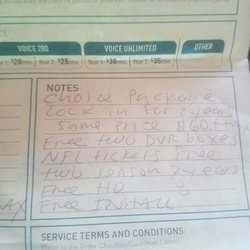 VOICE 200 VOICE UNLIMITED OTHER
Year 1: $20/mo Year 2: $25/mo Year 1: $30/mo Year 2: $35/mo
NOTES
Choice Package
LOCK in for 2 years
Same price $60.++
Free two DVR boxes
NFL tickets Free
two season 2 years
Free HD
Free INSTALL
SERVICE TERMS AND CONDITIONS:
(Refer to the Order Checklist/Customer Letter)